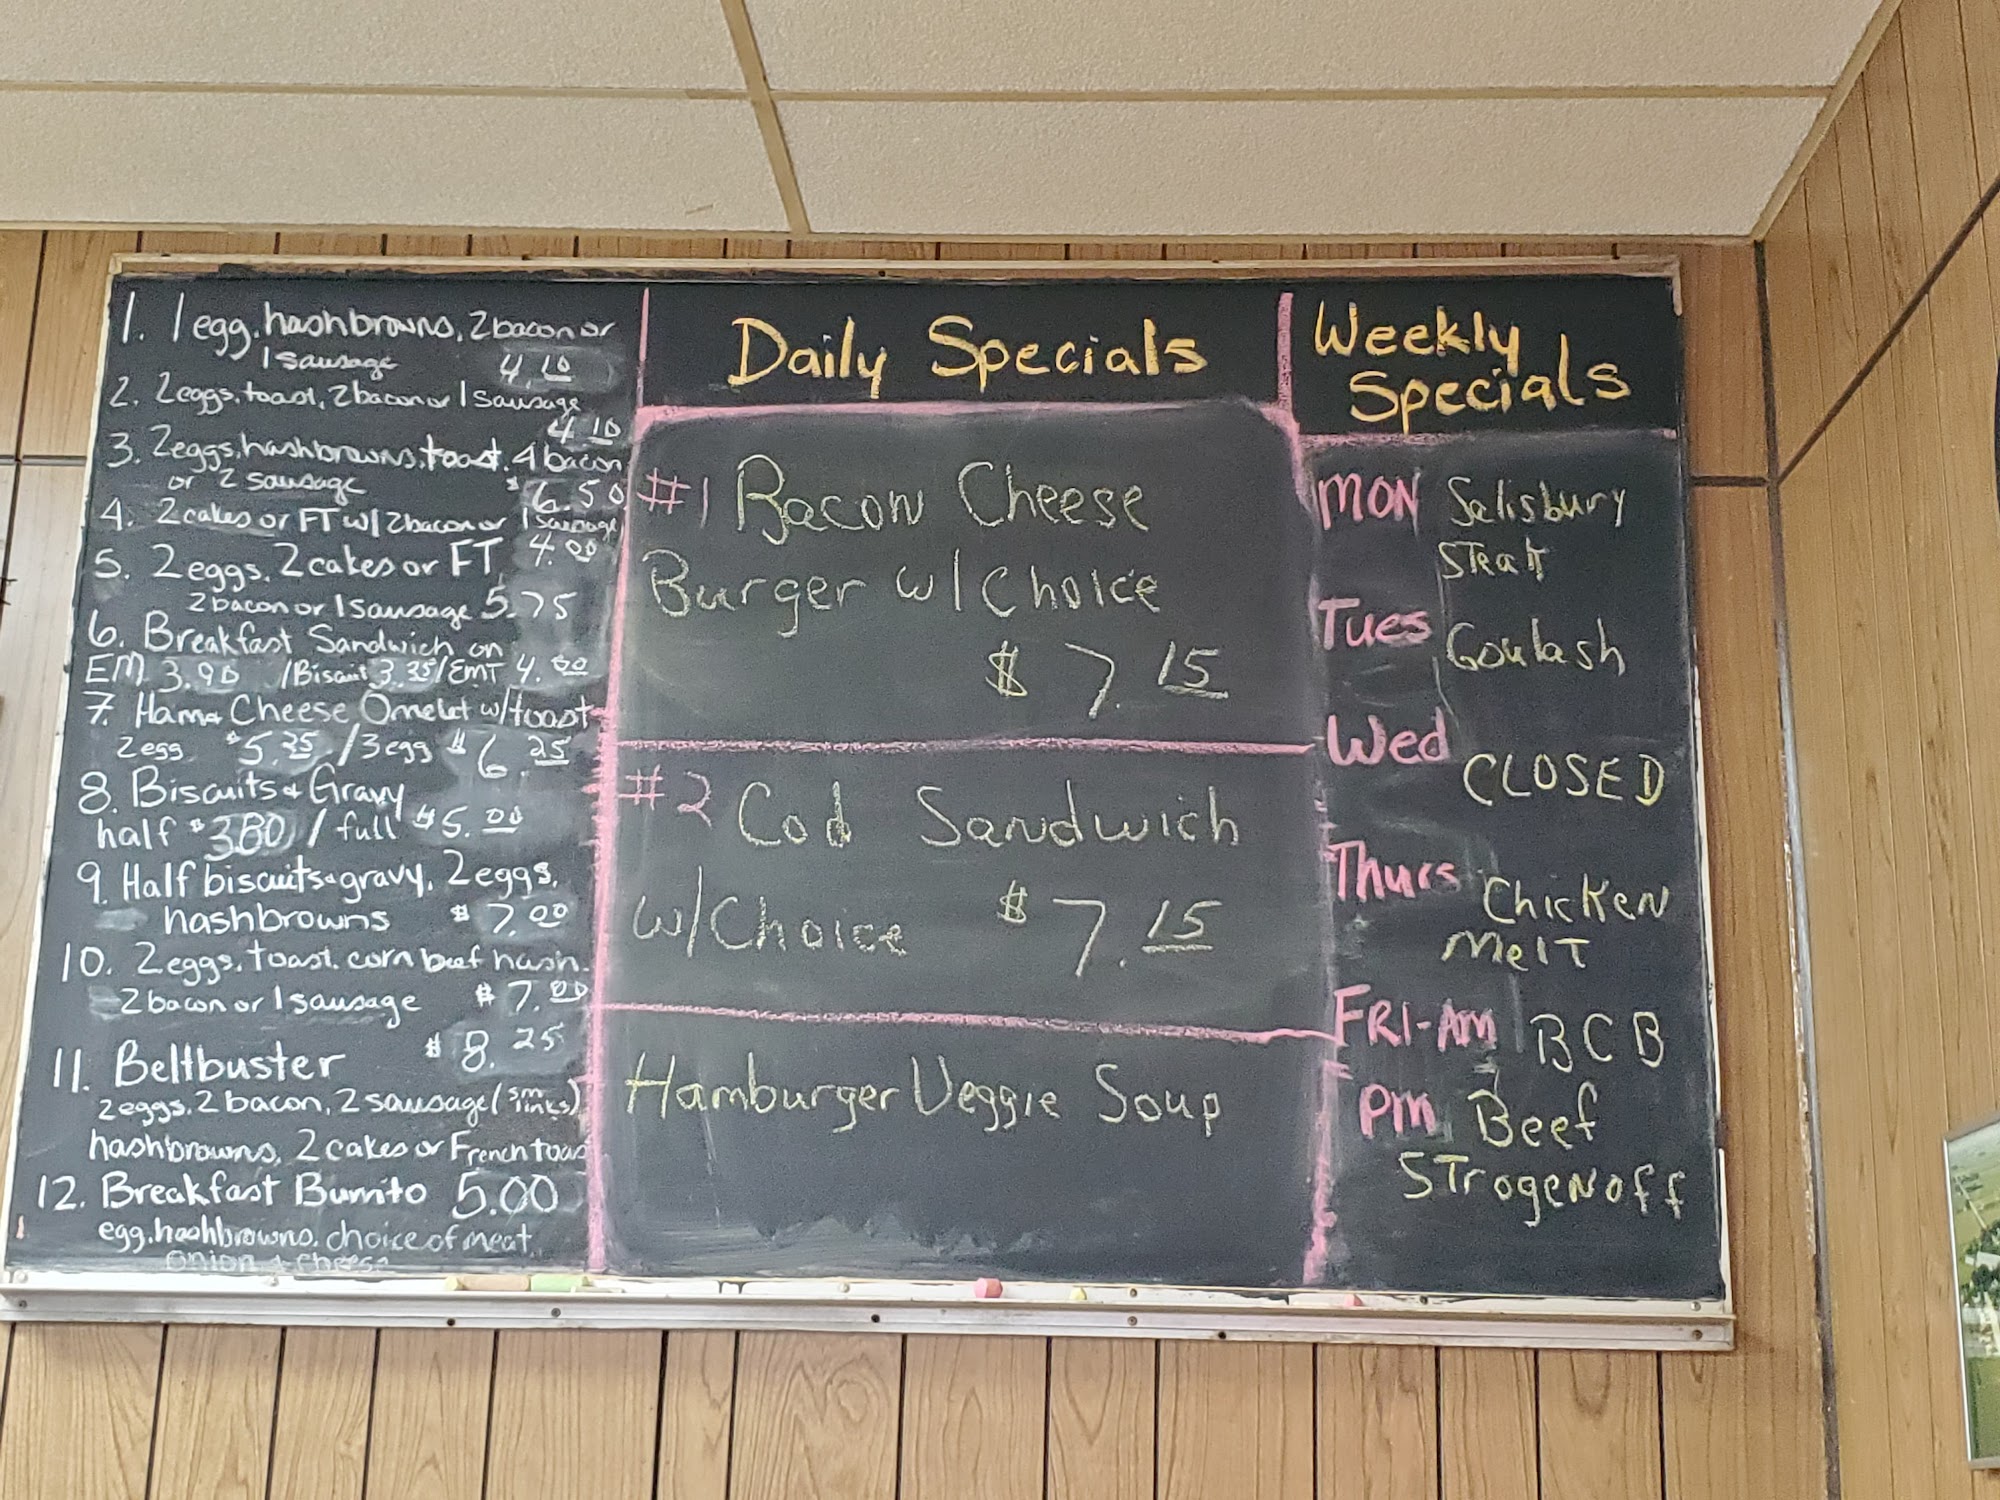 1. 1 egg, hashbrowns, 2 bacon or
1 sausage 4.10
2. 2 eggs, toast, 2 bacon or 1 sausage
4.10
3. 2 eggs, hashbrowns, toast, 4 bacon
or 2 sausage $6.50
4. 2 cakes or FT w/ 2 bacon or 1 sausage
4.00
5. 2 eggs, 2 cakes or FT
2 bacon or 1 sausage 5.75
6. Breakfast Sandwich on
EM 3.90 /Biscuit 3.35/EMT 4.00
7. Ham & Cheese Omelet w/toast
2 egg $5.25 /3 egg $6.25
8. Biscuits & Gravy
half $3.80 / full $5.00
9. Half biscuits & gravy, 2 eggs,
hashbrowns $7.00
10. 2 eggs, toast, corn beef hash,
2 bacon or 1 sausage $7.00
11. Beltbuster $8.25
2 eggs, 2 bacon, 2 sausage (sm links)
hashbrowns, 2 cakes or French toast
12. Breakfast Burrito 5.00
egg, hashbrowns, choice of meat
onion & cheese
Daily Specials
#1 Bacon Cheese
Burger w/ Choice
$7.15
#2 Cod Sandwich
w/Choice $7.15
Hamburger Veggie Soup
Weekly
Specials
MON Salisbury
Steak
Tues Goulash
Wed
CLOSED
Thurs Chicken
Melt
FRI-AM BCB
PM Beef
STrogenoff